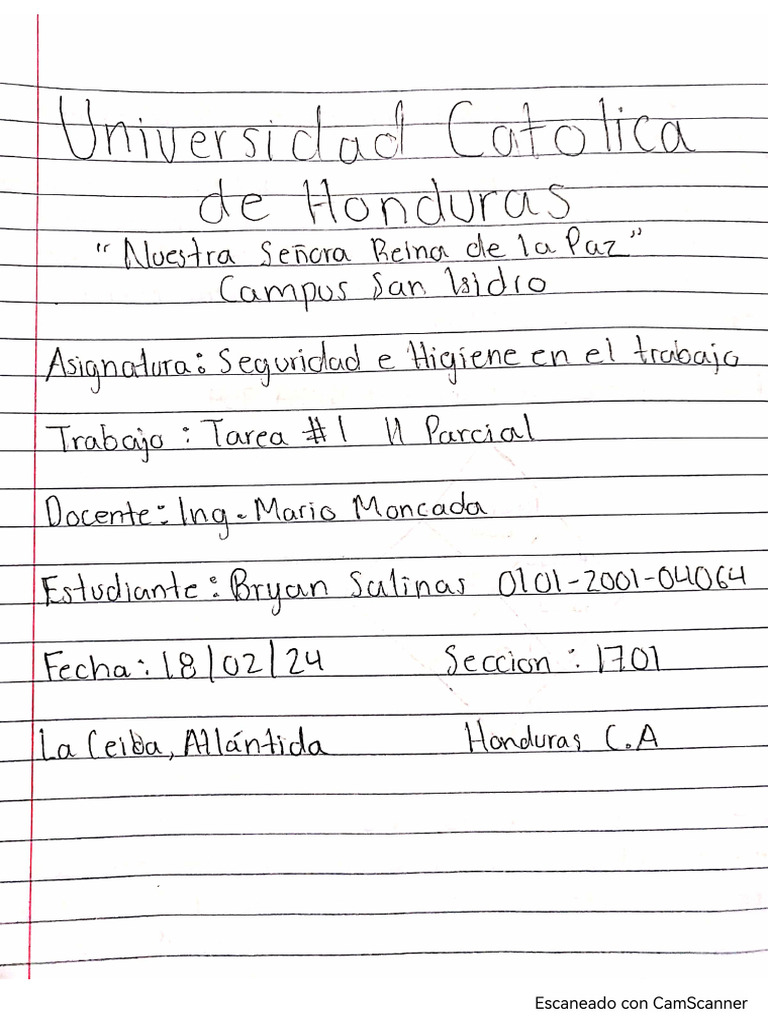 Universidad Catolica
de Honduras
"Nuestra Señora Reina de la Paz"
Campus San Isidro
Asignatura: Seguridad e Higiene en el trabajo
Trabajo: Tarea #1 II Parcial
Docente: Ing. Mario Moncada
Estudiante: Bryan Salinas 0101-2001-04064
Fecha: 18/02/24 Seccion: 1701
La Ceiba, Atlántida Honduras C.A
Escaneado con CamScanner